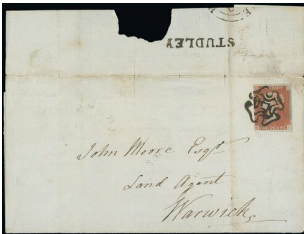 STUDLEY
John Moore Esqr
Land Agent
Warwick